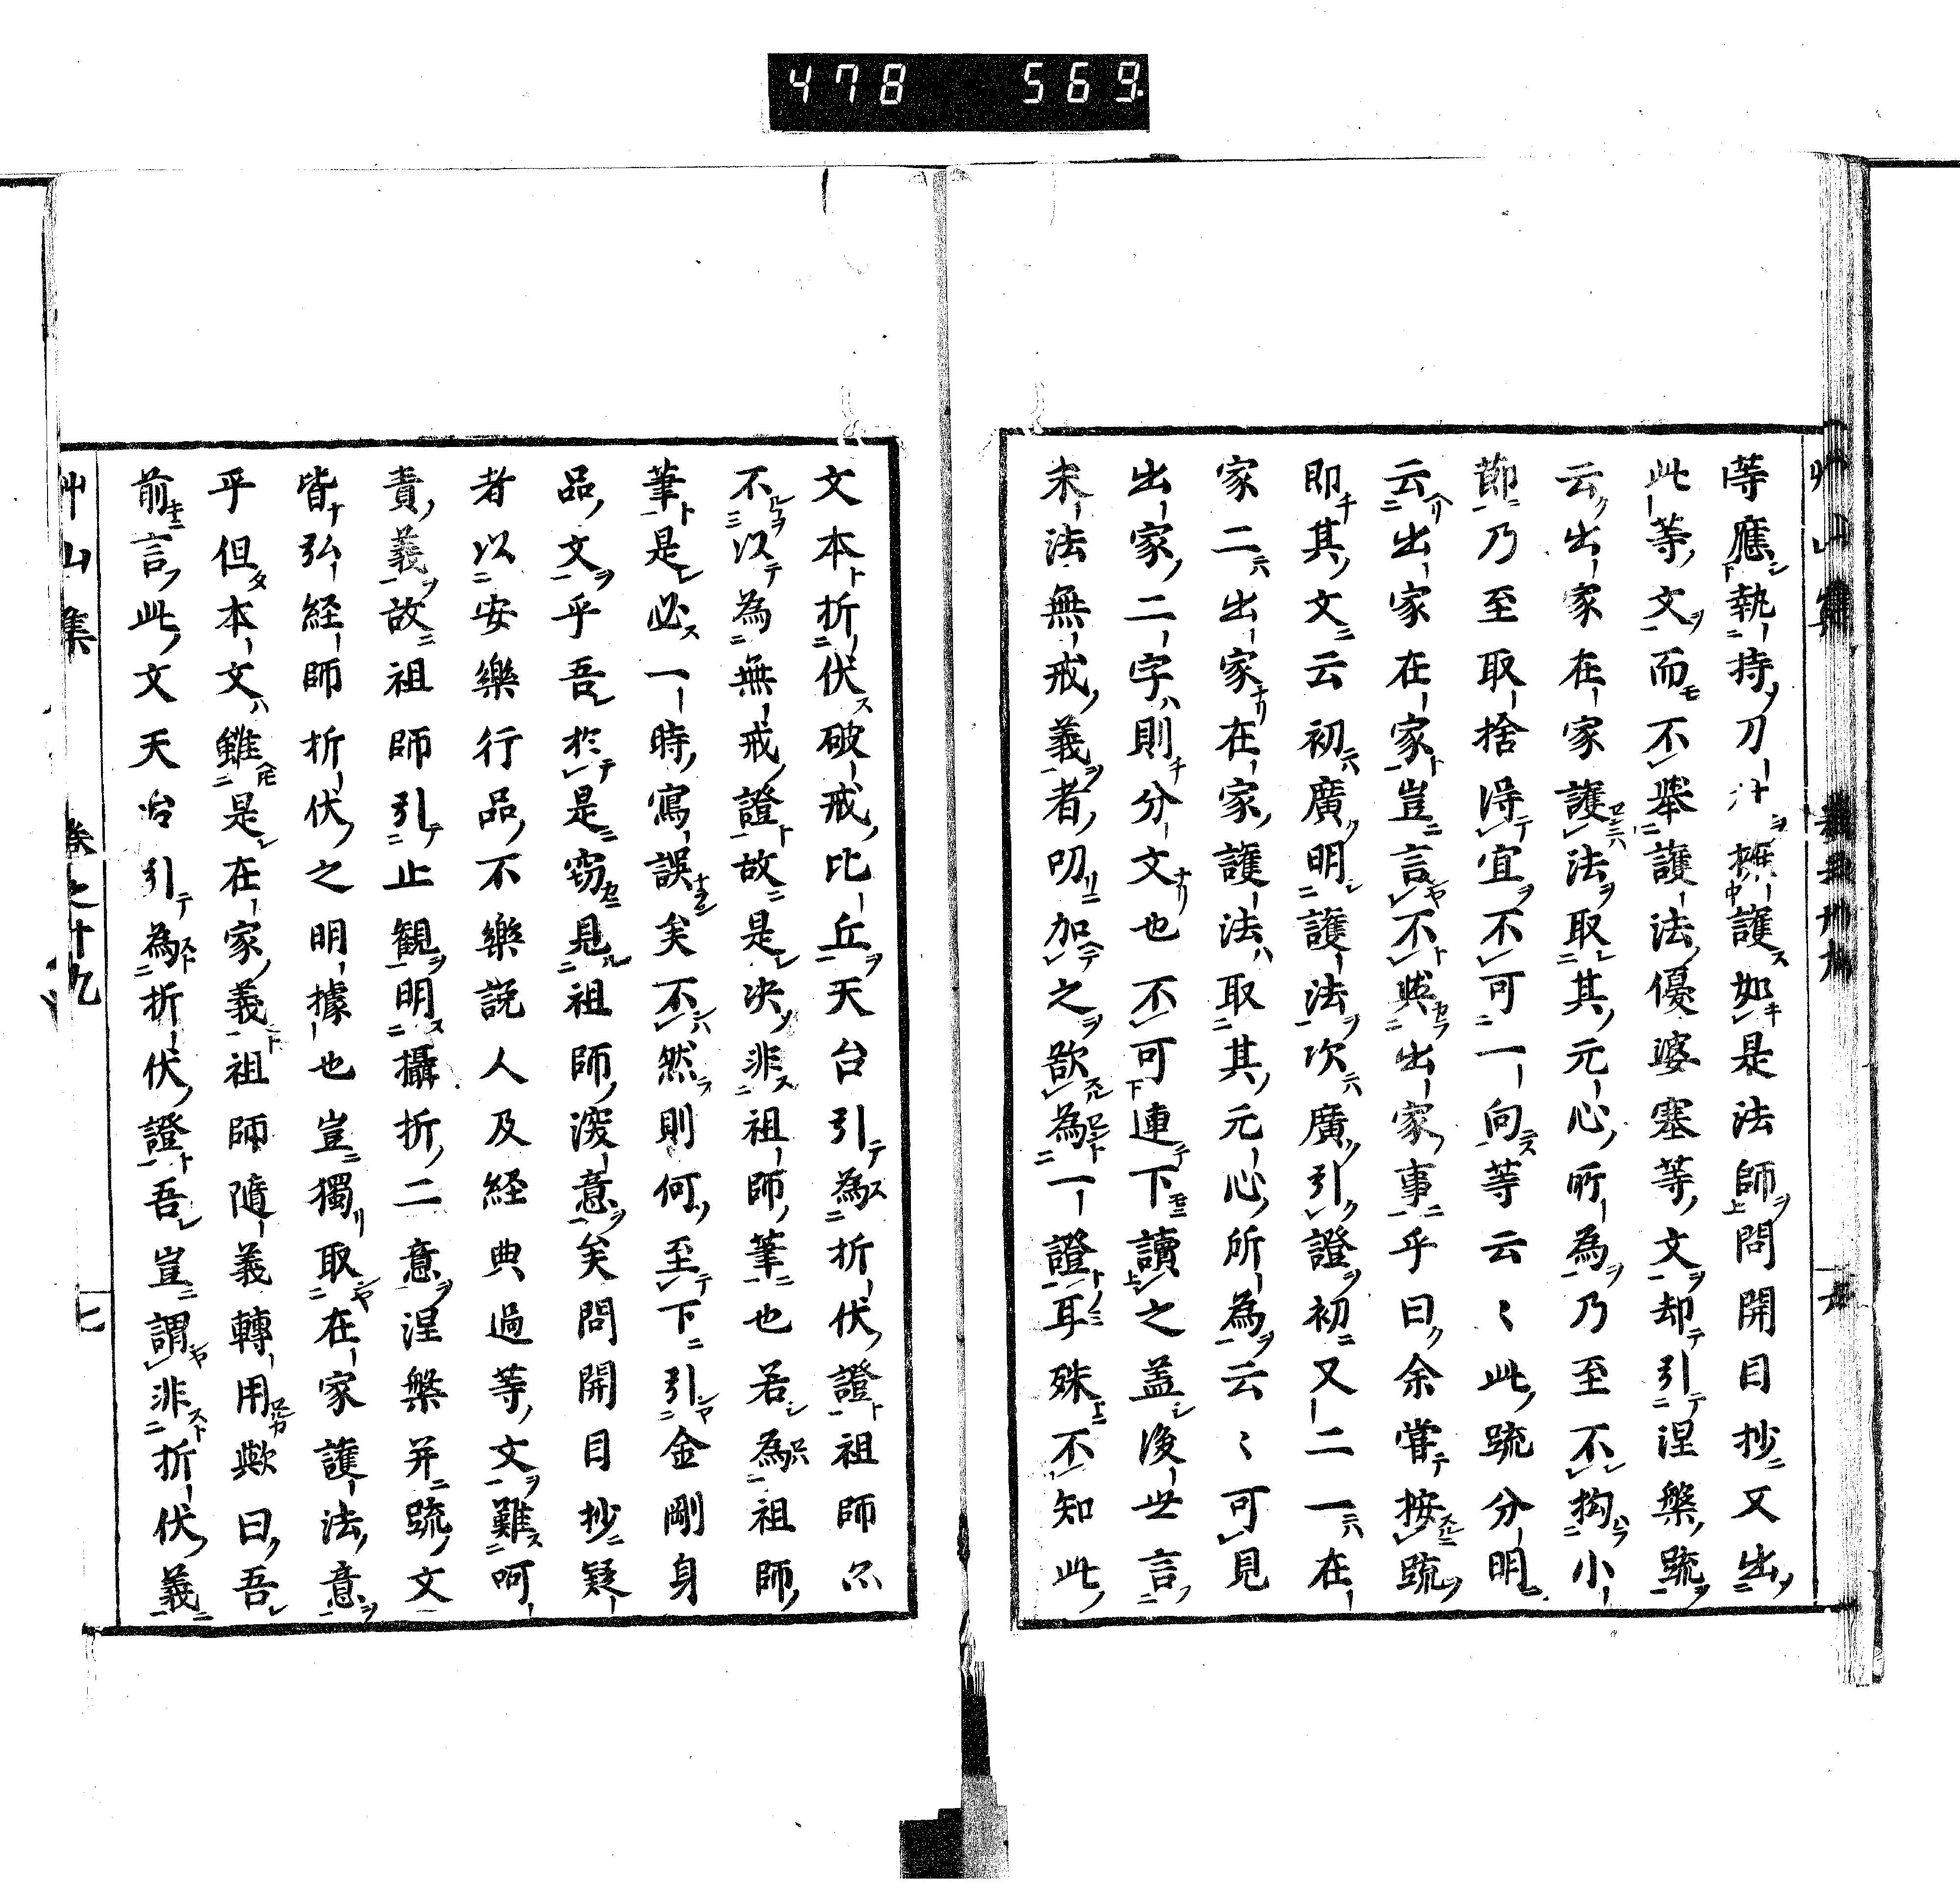 478 569
等應執持刀擁護如是法師問開目抄又出
此等文而不舉護法優婆塞等文却引涅槃疏
云出家在家護法取其元心所為乃至不拘小
節乃至取捨得宜不可一向等云〻此疏分明
云出家在家豈言不與出家事乎曰余嘗按疏
即其文云初廣明護法次廣引證初又二一在
家二出家在家護法取其元心所為云〻可見
出家二字則分文也不可連下讀之盖後世言
末法無戒義者叨加之欲為一證耳殊不知此
文本折伏破戒比丘天台引為折伏證祖師
不以為無戒證故是決非祖師筆也若為祖師
筆是必一時寫誤矣不然則何至下引金剛身
品文乎吾於是窃見祖師深意矣問開目抄疑
者以安樂行品不樂說人及経典過等文難呵
責義故祖師引止観明攝折二意涅槃并疏文
皆弘経師折伏之明據也豈獨取在家護法意
乎但本文雖是在家義祖師隨義轉用歟曰吾
前言此文天台引為折伏證吾豈謂非折伏義
艸山集 卷之十九 七